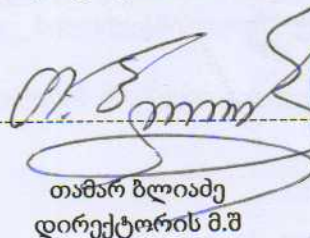 თამარ ბლიაძე
დირექტორის მ.შ